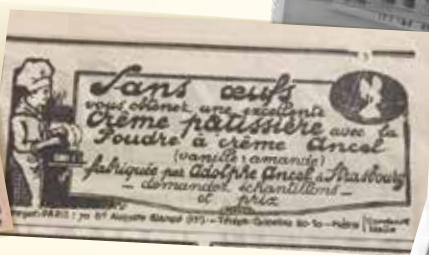 Sans œufs
vous obtenez une excellente
Crème pâtissière avec la
Poudre à crème Ancel
(vanille & amande)
fabriquée par Adolphe Ancel à Strasbourg
_ demandez échantillons _
et prix
PARIS : 70 Bd Auguste Blanqui (13e) - Téléph. Gobelins 80-50 - Métro